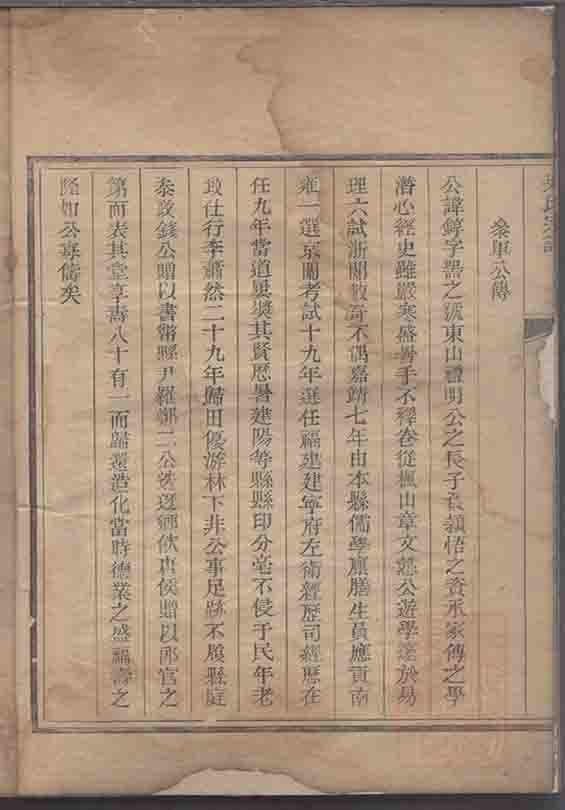 參軍公傳
公諱錞字器之號東山禮明公之長子負穎悟之資承家傳之學
潛心經史雖嚴寒盛暑手不釋卷從楓山章文懿公遊學邃於易
理六試浙闈數奇不偶嘉靖七年由本縣儒學廩膳生員應貢南
雍一選京闈考試十九年選任福建建寧府左衛經歷司經歷在
任九年當道奬其賢歷署建陽等縣縣印分毫不侵于民年老
致仕行李蕭然二十九年歸田優游林下非公事足跡不履縣庭
參政錢公贈以書幣縣尹羅鄭二公迭邀鄉飲唐侯贈以郎官之
第而表其堂享壽八十有一而歸還造化當時德業之盛福壽之
隆如公專儔矣